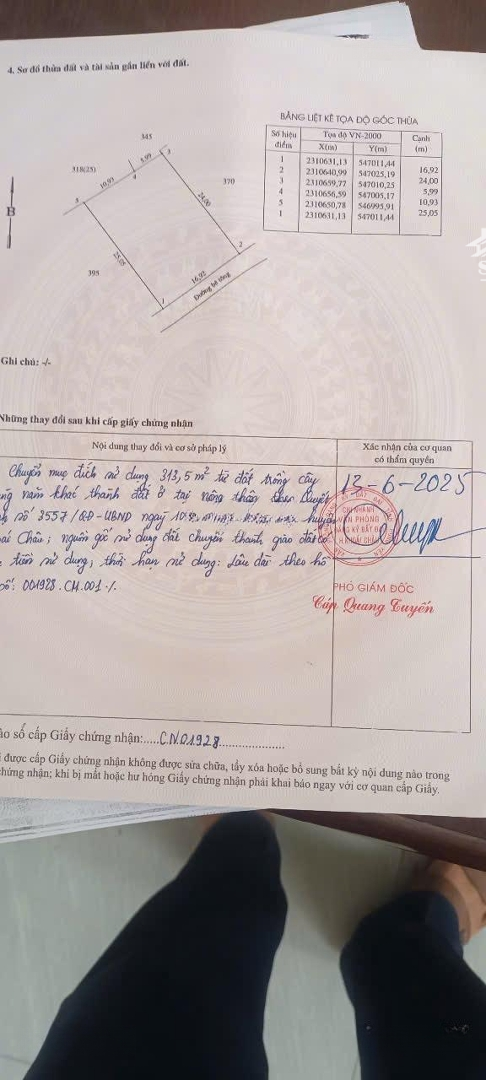 4. Sơ đồ thửa đất và tài sản gắn liền với đất.
BẢNG LIỆT KÊ TỌA ĐỘ GÓC THỬA
Số hiệu điểm Tọa độ VN-2000 Cạnh (m)
X(m) Y(m)
1 2310631,13 547011,44
16,92
2 2310640,99 547025,19
24,00
3 2310659,77 547010,25
5,99
4 2310656,59 547005,17
10,93
5 2310650,78 546995,91
25,05
1 2310631,13 547011,44
345
318(25)
5,99
3
10,93
4
370
5
24,00
B
25,05
2
395
16,92
1
Đường bê tông
Ghi chú: -/-
Những thay đổi sau khi cấp giấy chứng nhận
Nội dung thay đổi và cơ sở pháp lý
Xác nhận của cơ quan
có thẩm quyền
Chuyển mục đích sử dụng 313,5 m² từ đất trồng cây
năm khác thành đất ở tại nông thôn theo Quyết
số 3557/QĐ-UBND ngày huyện
Châu; nguồn gốc sử dụng đất chuyển thành, giao đất có
tiền sử dụng; thời hạn sử dụng: Lâu dài theo hồ
số: 001928.CM.001./.
13-6-2025
CHI NHÁNH
VĂN PHÒNG
ĐĂNG KÝ ĐẤT ĐAI
PHÓ GIÁM ĐỐC
Cáp Quang Tuyến
sổ cấp Giấy chứng nhận:.....CN01928
được cấp Giấy chứng nhận không được sửa chữa, tẩy xóa hoặc bổ sung bất kỳ nội dung nào trong
chứng nhận; khi bị mất hoặc hư hỏng Giấy chứng nhận phải khai báo ngay với cơ quan cấp Giấy.